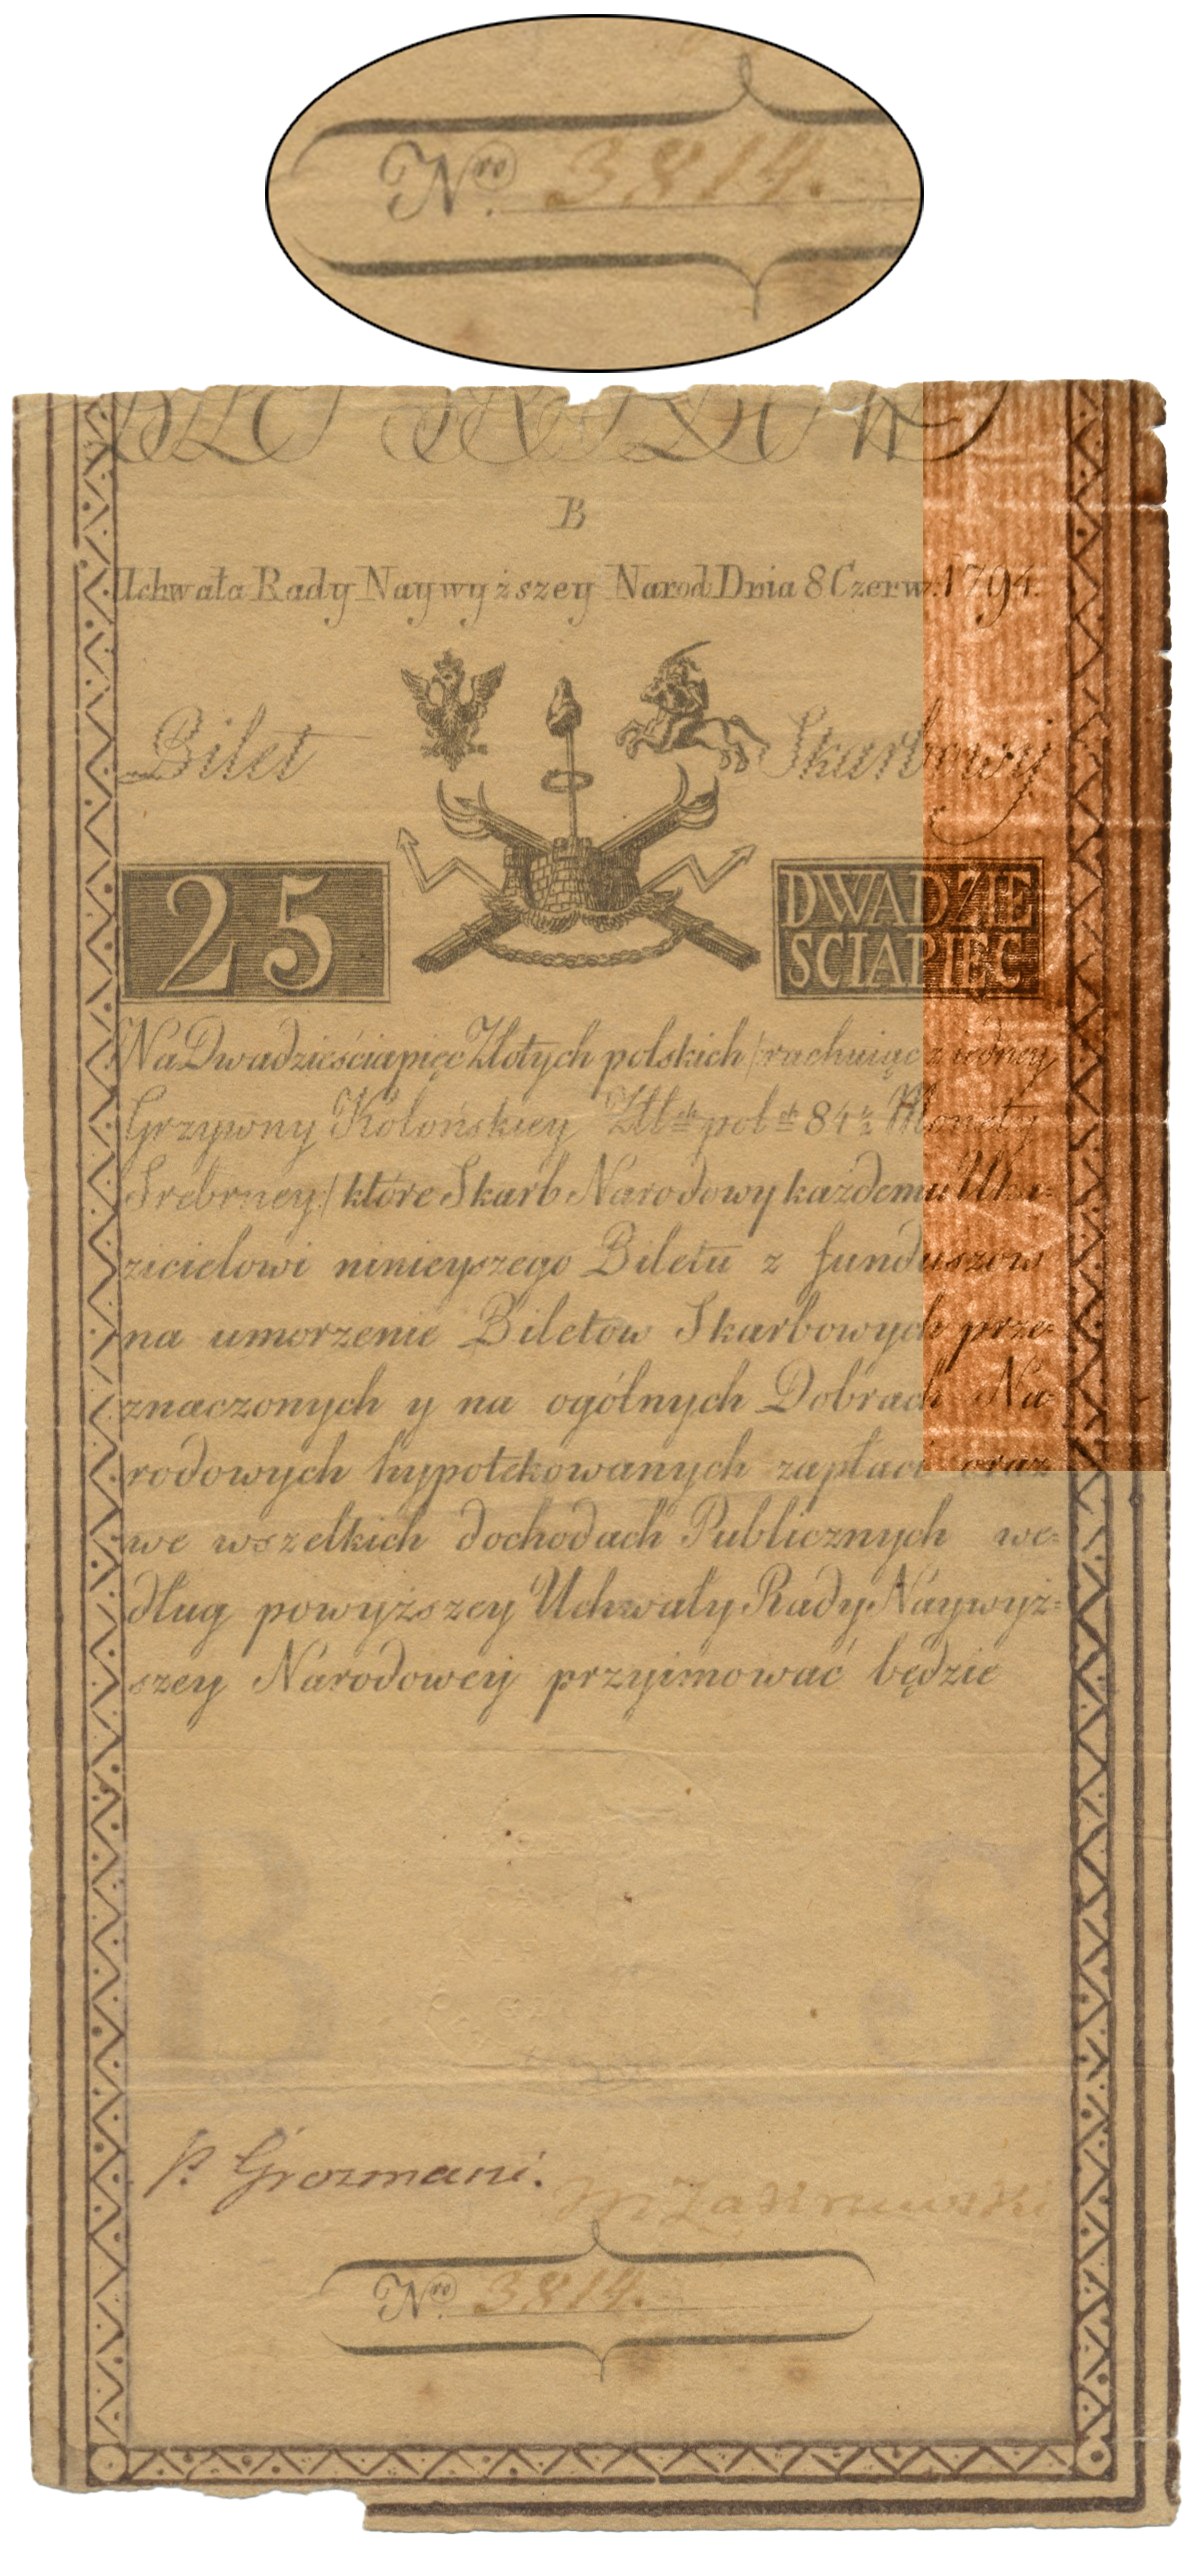 Nro 3814.
B
Uchwała Rady Naywyższey Narod: Dnia 8 Czerw: 1794.
Bilet Skarbowy
25
DWADZIE
SCIAPIĘC
Na Dwadzieściapięć Złotych polskich /rachuiąc z iedney
Grzywny Kolońskiey Złłch polch 84½ Monety
Srebrney/ które Skarb Narodowy każdemu Uka=
zicielowi ninieyszego Biletu z funduszow
na umorzenie Biletow Skarbowych prze=
znaczonych y na ogólnych Dobrach Na=
rodowych hypotekowanych zapłaci oraz
we wszelkich dochodach Publicznych we=
dług powyższey Uchwały Rady Naywyż=
szey Narodowey przyimować będzie
B S
P. Grozmani.
M Zakrzewski
Nro 3814.